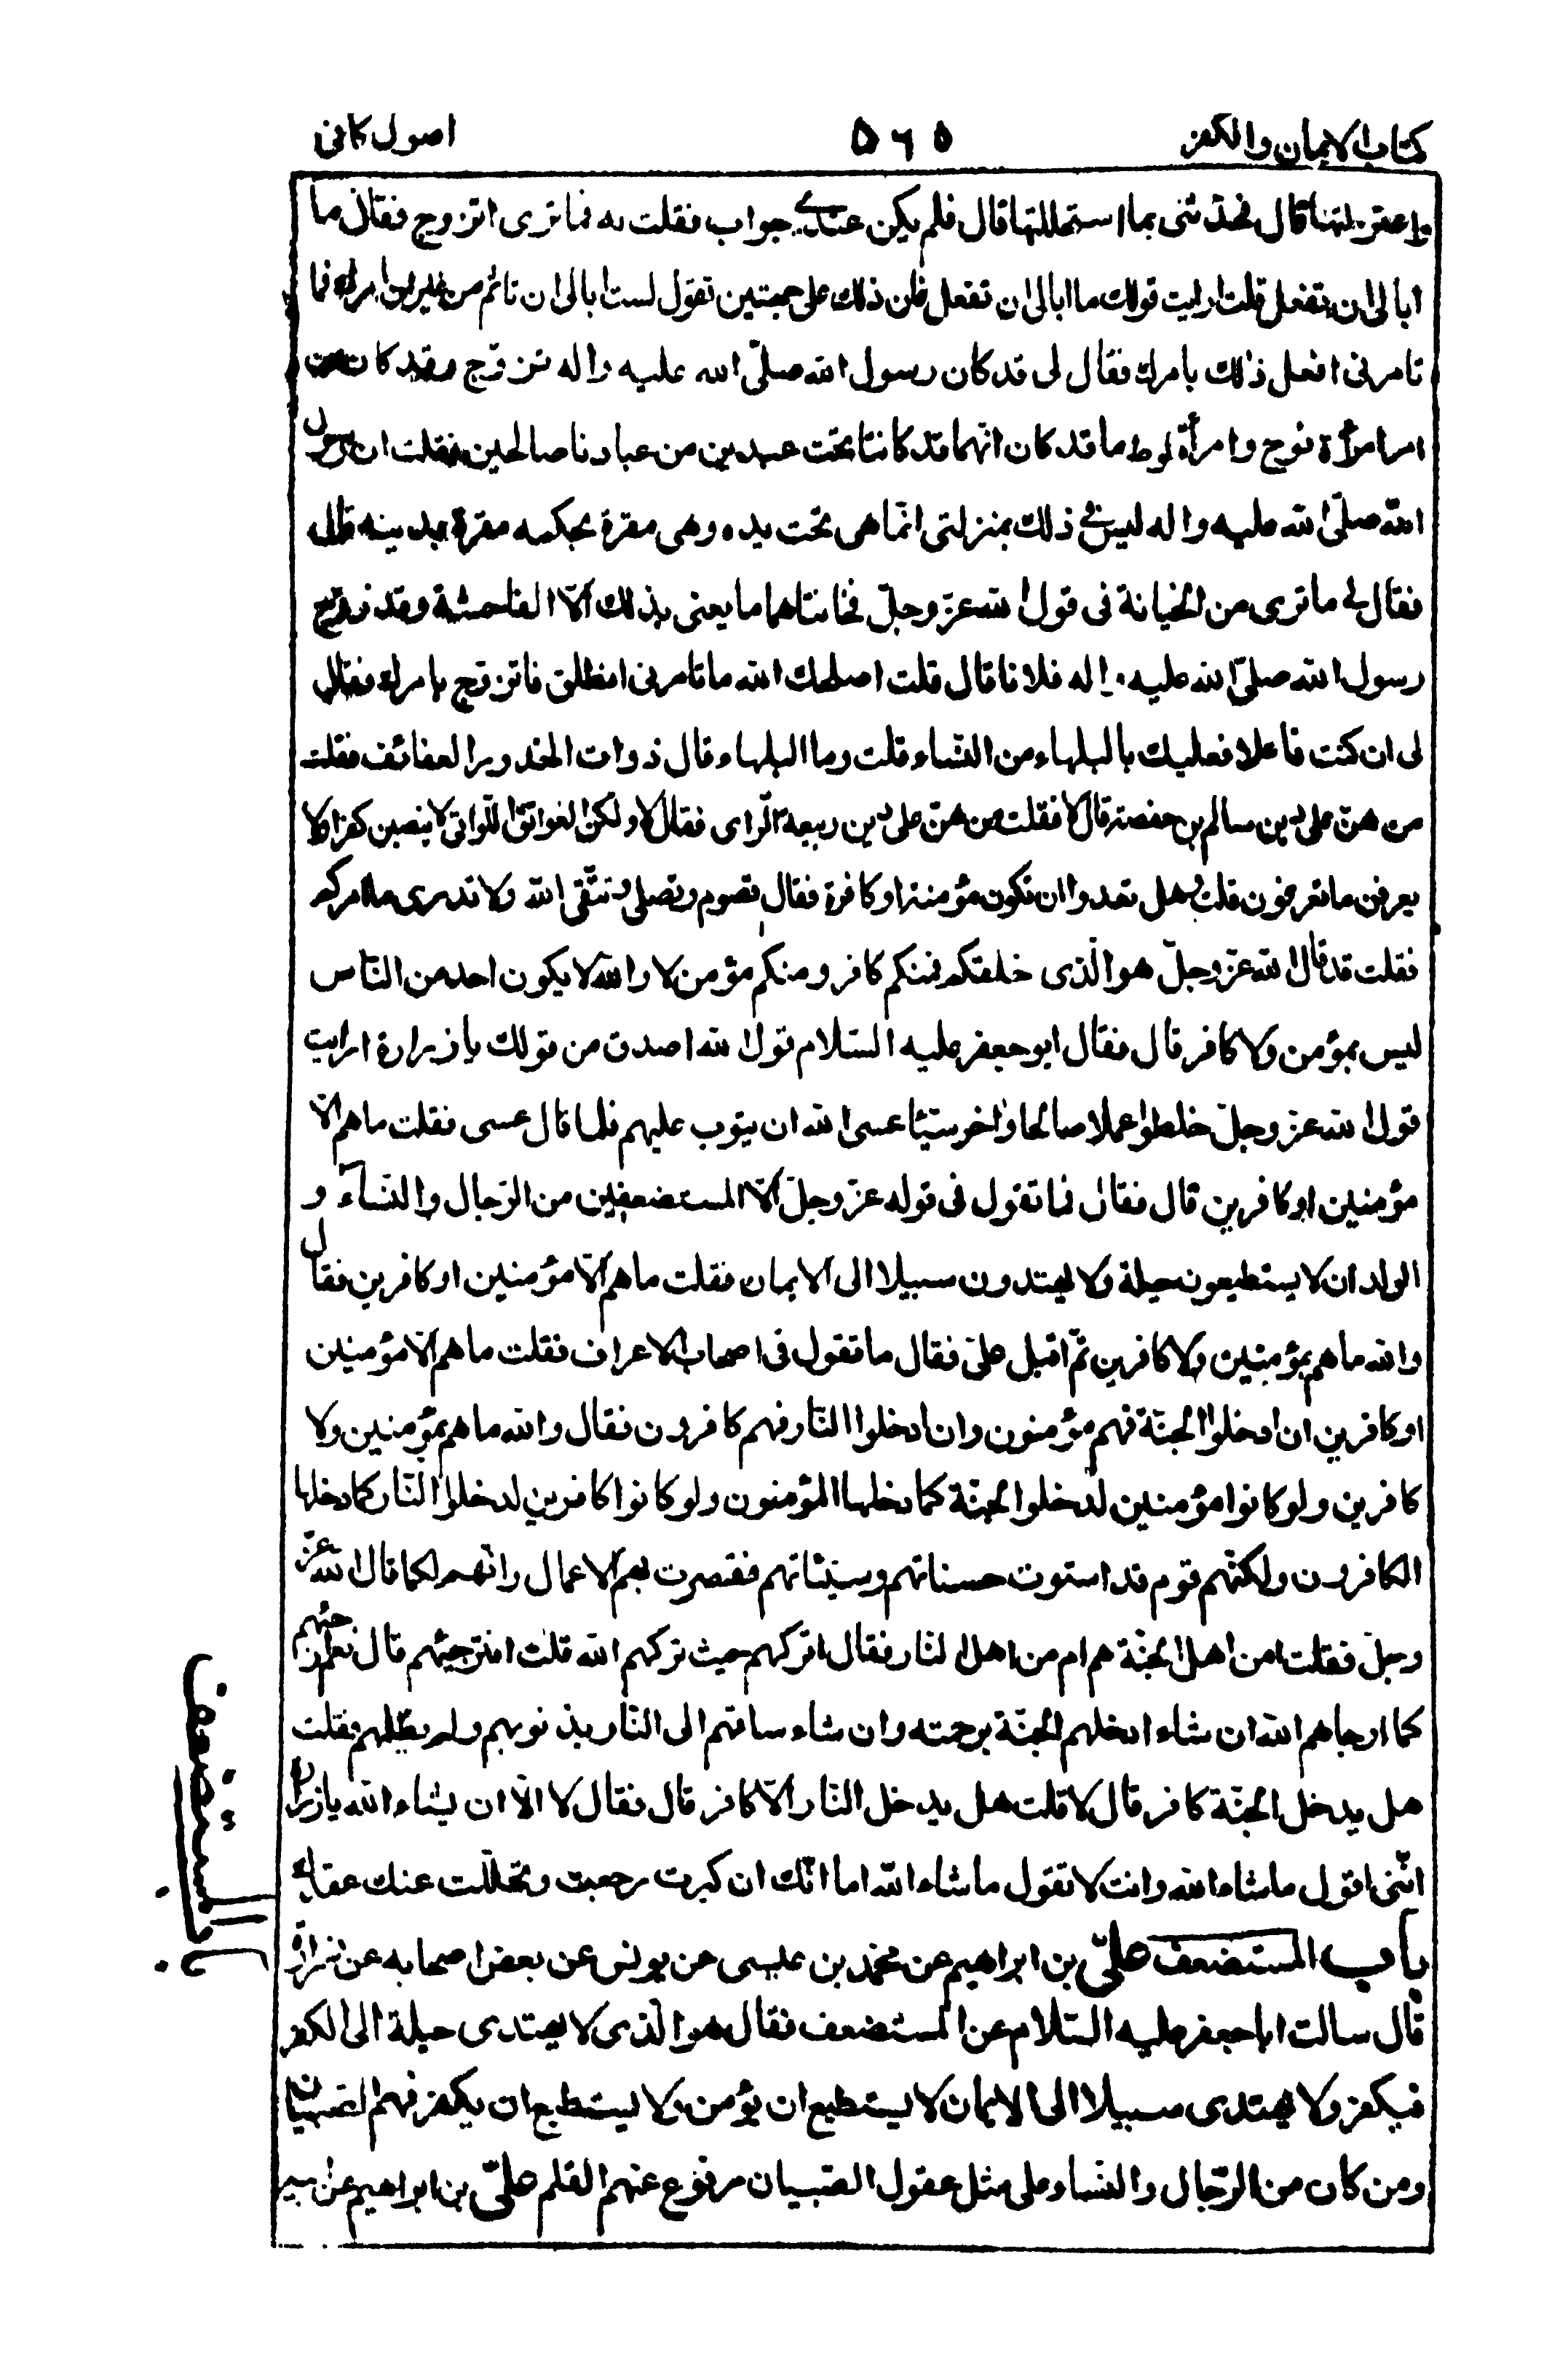 كتاب الايمان والكفر ۵۶۵ اصول كافى
واعتزلتها قال فحدثنى بما استحللتها قال فلم يكن عندى جواب فقلت له فما ترى اتزوج فقال ما
ابالى ان تفعل قلت ارايت قولك ما ابالى ان تفعل فان ذلك على جهتين تقول لست ابالى ان تاثم من غير ان امرك فما
تامرنى افعل ذلك بامرك فقال لى قد كان رسول الله صلّى الله عليه واله تزوّج وقد كان من
امر امرأة نوح وامرأة لوط ما قد كان انهما قد كانتا تحت عبدين من عبادنا صالحين فقلت ان رسول
الله صلّى الله عليه واله ليس فى ذلك بمنزلتى انّما هى تحت يده وهى مقرة بحكمه مقرة بدينه قال
فقال لى ما ترى من الخيانة فى قول الله عزّ وجلّ فخانتاهما ما يعنى بذلك الّا الفاحشة وقد زوّج
رسول الله صلّى الله عليه واله فلانا قال قلت اصلحك الله ما تامرنى انطلق فاتزوّج بامرك فقال
لى ان كنت فاعلا فعليك بالبلهاء من النّساء قلت وما البلهاء قال ذوات الخدور العفائف فقلت
من هنّ على دين سالم بن حفصة قال لا فقلت من هنّ على دين ربيعة الّراى فقال لا ولكنّ العواتق اللّواتى لا ينصبن كفرا ولا
يعرفن ما تعرفون قلت وهل تعدوا ان تكون مؤمنة او كافرة فقال تصوم وتصلى وتتّقى الله ولا تدرى ما امركم
فقلت قد قال الله عزّ وجلّ هو الّذى خلقكم فمنكم كافر ومنكم مؤمن لا والله لا يكون احد من النّاس
ليس بمؤمن ولا كافر قال فقال ابو جعفر عليه السّلام قول الله اصدق من قولك يا زرارة ارايت
قول الله عزّ وجلّ خلطوا عملا صالحا واخر سيّئا عسى الله ان يتوب عليهم فلما قال عسى فقلت ما هم الّا
مؤمنين او كافرين قال فقال فما تقول فى قوله عزّ وجلّ الّا المستضعفين من الرّجال والنّساء و
الولدان لا يستطيعون حيلة ولا يهتدون سبيلا الى الايمان فقلت ما هم الّا مؤمنين او كافرين فقال
والله ما هم بمؤمنين ولا كافرين ثمّ اقبل علىّ فقال ما تقول فى اصحاب الاعراف فقلت ما هم الّا مؤمنين
او كافرين ان ادخلوا الجنّة فهم مؤمنون وان ادخلوا النّار فهم كافرون فقال والله ما هم بمؤمنين ولا
كافرين ولو كانوا مؤمنين لدخلوا الجنّة كما دخلها المؤمنون ولو كانوا كافرين لدخلوا النّار كما دخلها
الكافرون ولكنّهم قوم قد استوت حسناتهم وسيّئاتهم فقصرت بهم الاعمال وانّهم لكما قال الله عزّ
وجلّ فقلت امن اهل الجنّة هم ام من اهل النّار فقال اتركهم حيث تركهم الله قلت افترجئهم قال نعم ارجئهم
كما ارجاهم الله ان شاء ادخلهم الجنّة برحمته وان شاء ساقهم الى النّار بذنوبهم ولم يظلمهم فقلت
هل يدخل الجنّة كافر قال لا قلت هل يدخل النّار الّا كافر قال فقال لا الّا ان يشاء الله يا زرارة
انّنى اقول ما شاء الله وانت لا تقول ما شاء الله اما انّك ان كبرت رجعت وتحلّلت عنك عقدك
باب المستضعف علىّ بن ابراهيم عن محمد بن عيسى عن يونس عن بعض اصحابه عن زرارة
قال سالت ابا جعفر عليه السّلام عن المستضعف فقال هو الّذى لا يهتدى حيلة الى الكفر
فيكفر ولا يهتدى سبيلا الى الايمان لا يستطيع ان يؤمن ولا يستطيع ان يكفر فهم الصّبيان
ومن كان من الرّجال والنّساء على مثل عقول الصّبيان مرفوع عنهم القلم علىّ بن ابراهيم عن ابيه
باب المستضعف